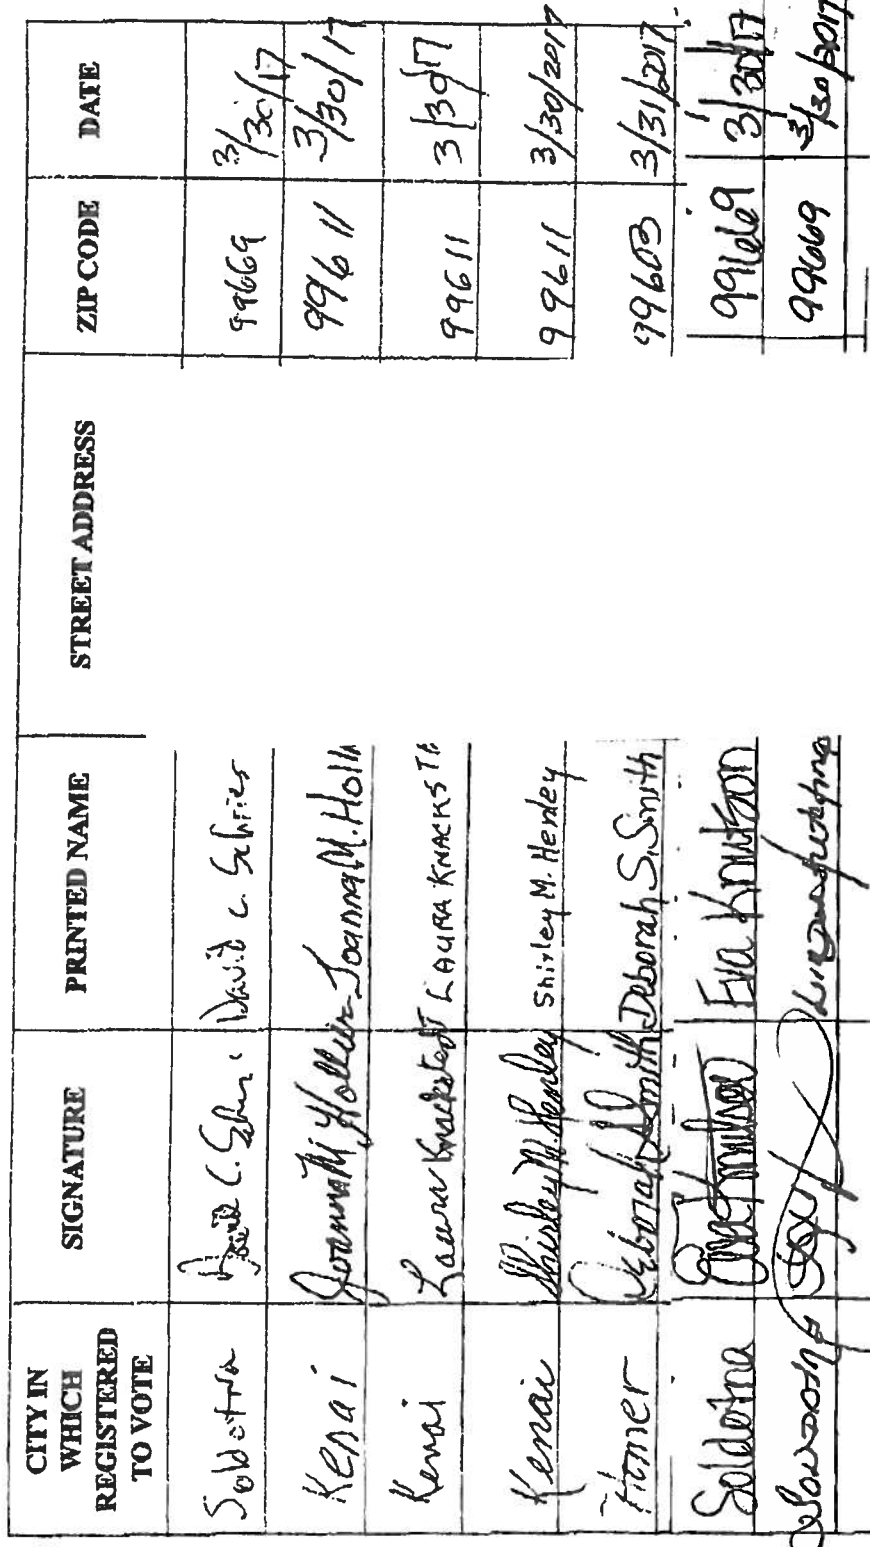 CITY IN WHICH REGISTERED TO VOTE SIGNATURE PRINTED NAME STREET ADDRESS ZIP CODE DATE
Soldotna David C. Schrier David C. Schrier 99669 3/30/17
Kenai Joanna M. Hollier Joanna M. Holli 99611 3/30/17
Kenai Laura Knackstedt LAURA KNACKSTE 99611 3/30/17
Kenai Shirley M. Henley Shirley M. Henley 99611 3/30/2017
Homer Deborah S Smith Deborah S. Smith 99603 3/31/2017
Soldotna Eva Knutson Eva Knutson 99669 3/30/17
99669 3/30/2017